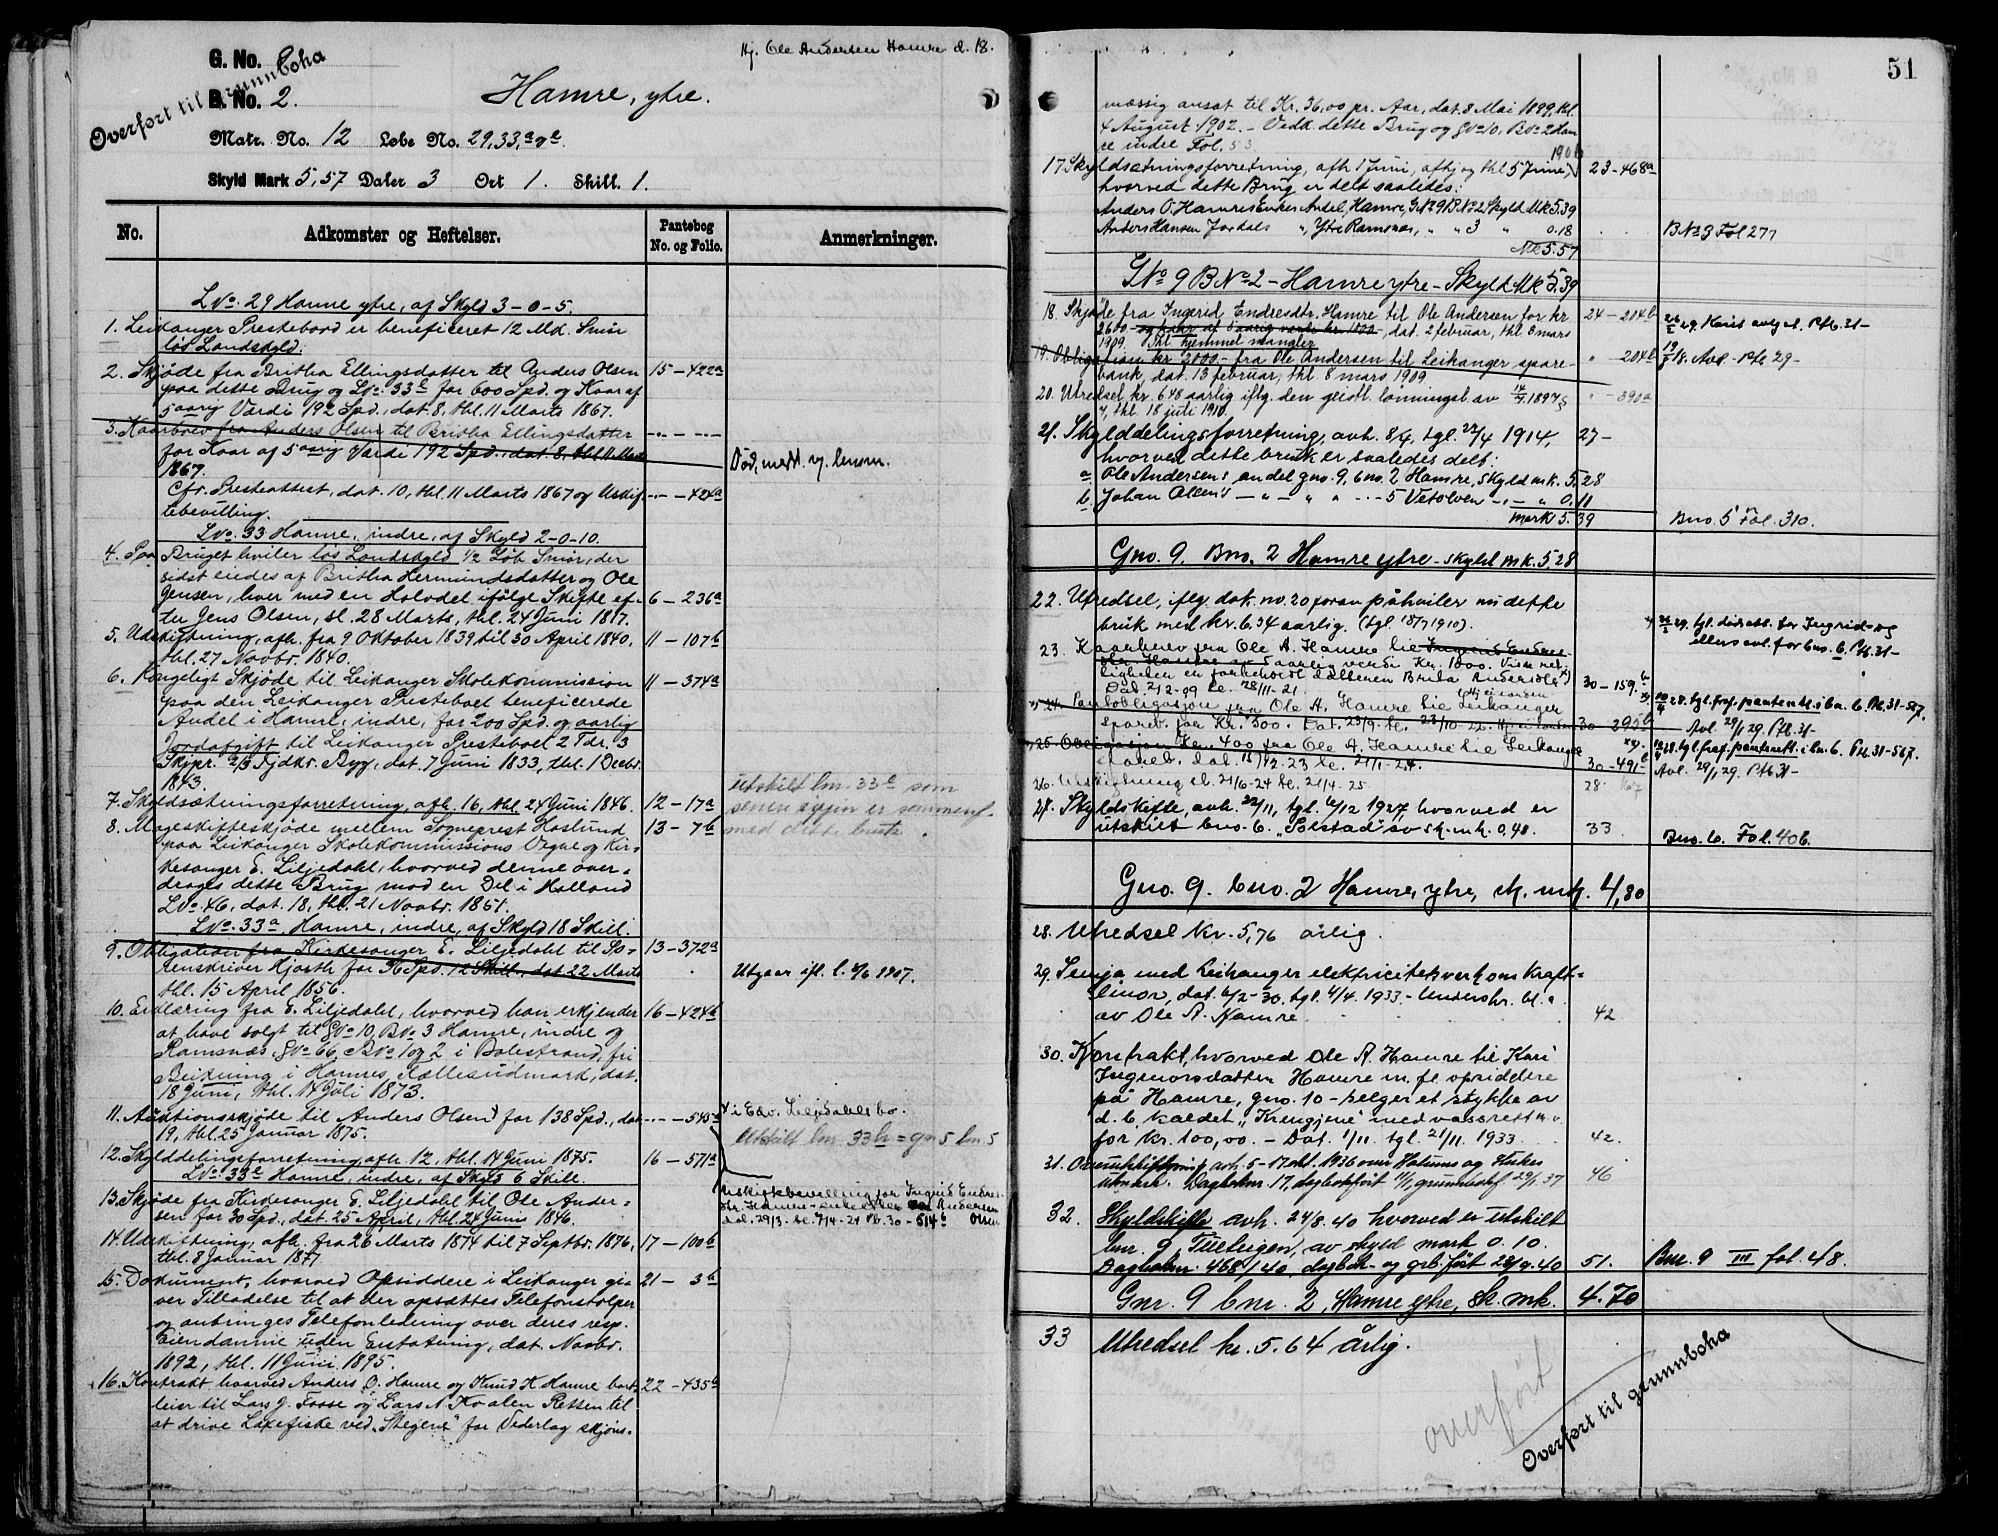 Hj. Ole Andersen Hamre d. 18.
G. No. 9
B. No. 2.
Overført til grunnboka
Hamre, ytre.
Matr. No. 12 Løbe No. 29, 33, a & c
Skyld Mark 5,57 Daler 3 Ort 1. Skill. 1.
No. Adkomster og Heftelser. Pantebog No. og Folio. Anmerkninger.
LNo. 29 Hamre ytre, af Skyld 3-0-5.
1. Leikanger Prestebord er beneficeret 12 Md. Smør
løs Landskyld.
2. Skjøde fra Britha Ellingsdatter til Anders Olsen 15-422a
paa dette Brug og LNo. 33 for 600 Spd. og Kaar af
5 aarig Værdi 192 Spd., dat. 8, thl. 11 Marts 1867.
3. Kaarbrev fra Anders Olsen til Britha Ellingsdatter
for Kaar af 5 aarig Værdi 192 Spd., dat. 8, thl. 11 Marts
1867. Død, medl. og lensm.
Cfr. Presteattest, dat. 10, thl. 11 Marts 1867 og Uskif- 424a
tebevilling.
LNo. 33 Hamre, indre, af Skyld 2-0-10.
4. Paa Bruget hviler løs Landskyld 1/2 Løb Smør, der
sidst eiedes af Britha Hermundsdatter og Ole
Jensen, hver med en Halvdel ifølge Skifte ef- 6-236a
ter Jens Olsen, sl. 28 Marts, thl. 24 Juni 1817.
5. Udskiftning, afh. fra 9 Oktober 1839 til 30 April 1840, 11-107b
thl. 27 Novbr. 1840.
6. Kongeligt Skjøde til Leikanger Skolekommission 11-374a
paa den Leikanger Presteboel beneficerede
Andel i Hamre, indre, for 200 Spd. og aarlig
Jordafgift til Leikanger Presteboel 2 Tdr. 3
Skjpr. 2/3 Fjdkr. Byg, dat. 7 Juni 1833, thl. 1 Decbr.
1843.
7. Skyldsætningsforretning, afh. 16, thl. 24 Juni 1846. 12-17a
utskilt lnr. 33c som
senere igjen er sammenf.
med dette bruk.
8. Mageskifteskjøde mellem Sogneprest Haslund 13-7b
paa Leikanger Skolekommissions Vegne og Kir-
kesanger E. Liljedahl, hvorved denne over-
drages dette Brug mod en Del i Holland
LNo. 46, dat. 18, thl. 21 Novbr. 1851.
LNo. 33a, Hamre, indre, af Skyld 18 Skill.
9. Obligation fra Kirkesanger E. Liljedahl til So- 13-372a
renskriver Hjorth for 36 Spd. 12 Skill., dat. 22 Marts
thl. 15 April 1856.
Utgaar ifl. l. 4/6 1907.
10. Erklæring fra E. Liljedahl, hvorved han erkjender 16-424b
at have solgt til GNo 10, BNo 3 Hamre, indre og
Ramsnæs GNo 66, BNo 1 og 2 i Balestrand, fri
Beitning i Hamres Fællesudmark, dat.
18 Juni, thl. 14 Juli 1873.
11. Auktionsskjøde til Anders Olsen for 138 Spd., dat. 545a
19, thl. 25 Januar 1875.
x i Edv. Liljedahls bo.
Utskilt lnr. 33b = gnr 5 bnr. 5
12. Skylddelingsforretning, afh. 12, thl. 14 Juni 1875. 16-571a
LNo. 33c Hamre, indre, af Skyld 6 Skill.
13. Skjøde fra Kirkesanger E. Liljedahl til Ole Ander-
sen for 30 Spd., dat. 25 April, thl. 24 Juni 1846.
Uskiftebevilling for Ingrid Endres-
dtr. Hamre - enke etter Andersen
dat. 29/3 - tl. 7/4 - 24 Pb. 30 - 514b Olsen
14. Udskiftning, afh. fra 26 Marts 1874 til 7 Septbr. 1876, 17-100b
thl. 8 Januar 1877
15. Dokument, hvorved Opsiddere i Leikanger gi- 21-3b
ver Tilladelse til at der opsættes Telefonstolper
og anbringes Telefonledning over deres resp.
Eiendomme uden Erstatning, dat. Novbr.
1892, thl. 11 Juni 1895.
16. Kontrakt hvorved Anders O. Hamre og Knud H. Hamre bort- 22-435b
leier til Lars J. Fosse og Lars N. Kvalen Retten til
at drive Laxefiske ved "Stegene" for Vederlag skjøns-
51
mæssig ansat til Kr. 36,00 pr. Aar, dat. 8 Mai 1899, thl.
4 August 1902. - Vedk. dette Brug og GNo 10, BNo 2 Ham
re indre Fol. 53
17. Skyldsætningsforretning, afh. 1 Juni, afhj. og thl. 5 Juni 1906 23-468a
hvorved dette Brug er delt saaledes:
Anders O. Hamres Enkes Andel, Hamre, GNo 9 BNo 2 Skyld Mk 5.39
Anders Hansen Jordals ", Ytre Ramsnæs, " " 3 " 0.18 BNo 3 Fol 277
Mk 5.57
GNo 9 BNo 2 - Hamre ytre - Skyld Mk 5.39
18. Skjøde fra Ingerid Endresdtr. Hamre til Ole Andersen for kr 24-204b
2600.- og kaar af 5 aarig værdi kr. 1000, dat. 2 februar, thl. 8 mars
1909. Thl. hjemmel mangler
29. Kaaret avlyst. Pb. 31-
19. Obligation kr 2000 - fra Ole Andersen til Leikanger spare- " - 204b
bank, dat. 13 februar, thl. 8 mars 1909
18. Avl. - Pb 29-
20. Utredsel kr. 6.48 aarlig iflg. den geistl. lønningsl. av 14/7 1897 § " - 390a
7, thl. 18 juli 1910.
21. Skylddelingsforretning, avh. 8/4, tgl. 22/4 1914, 27-
hvorved dette bruk er saaledes delt:
a. Ole Andersens andel gno. 9, bno. 2 Hamre, skyld mk. 5.28
b. Johan Olsen's - " - " " ... 5 Vetolven -"- " 0.11
mark 5.39 Bno. 5 Fol. 310.
Gno. 9. Bno. 2 Hamre ytre - skyld mk. 5.28
22. Utredsel, iflg. dok. no. 20 foran påhviler nu dette
bruk med kr. 6.34 aarlig. (tgl. 18/7 1910).
23. Kaarbrev fra Ole A. Hamre til Ingerid Endres-
dtr. Hamre av 5 aarlig verdi Kr. 1000. Visse ret-
tigheter er forbeholdt datteren Brita Andersdtr. x) 30-159.b
Dat. 2/2-09 tl. 28/11-21.
x) 29. tgl. for Ingrid - og
ellers avl. for bno. 6. Pb. 31-
24. Pantobligasjon fra Ole A. Hamre til Leikanger
spareb. for Kr. 300. Dat. 23/9. tl. 23/10-22. 30-295b
28. tgl. fraf. panterett i bn. 6 Pb. 31-567.
Avl. 29/1 29. Pb. 31-
25. Obligasjon Kr. 400 fra Ole A. Hamre til Leikanger
spareb. dat. 15/12-23 tl. 21/1-24. 30-491b
28. tgl. fraf. panterett i bn. 6. Pb. 31-567.
Avl. 29/1 29. Pb 31-
26. Utskiftning sl. 21/6-24 tl. 21/4-25 28.
27. Skyldskifte, avh. 22/11, tgl. 6/12 1927, hvorved er
utskilt bno. 6. "Solstad" av sk. mk. 0,48. 33 Bno. 6. Fol. 406.
Gno. 9. bno. 2 Hamre, ytre, sk. mk. 4,80
28. Utredsel kr. 5,76 årlig.
29. Semja med Leikanger elektricitetsverk om kraft-
linor, dat. 6/2-30. tgl. 4/4. 1933 - Underskr. bl. a.
av Ole A. Hamre 42
30. Kontrakt, hvorved Ole A. Hamre til Kari
Ingemorsdatter Hamre m. fl. opsiddere
på Hamre, gno. 10 - selger et stykke av
d. b. kaldet "Krengjene" med vassrett m. v
for kr. 100,00. - Dat. 1/11. tgl. 21/11. 1933. 42.
31. Overutskiftning avh. 5-17 okt. 1936 over Hatuns og Stukes
utmark. Dagboknr. 17, dagbokført 11/1, grunnbokf. 29/1 37 46
32. Skyldskifte avh. 24/8.40 hvorved er utskilt
bnr. 9, Tueteigen, av skyld mark 0.10.
Dagboknr. 468/40, dagbok- og grb.ført 28/9.40 51. Bnr. 9 III fol. 48.
Gnr. 9 bnr. 2, Hamre ytre, sk. mk. 4.70
33 Utredsel kr. 5.64 årlig.
overført
Overført til grunnboka